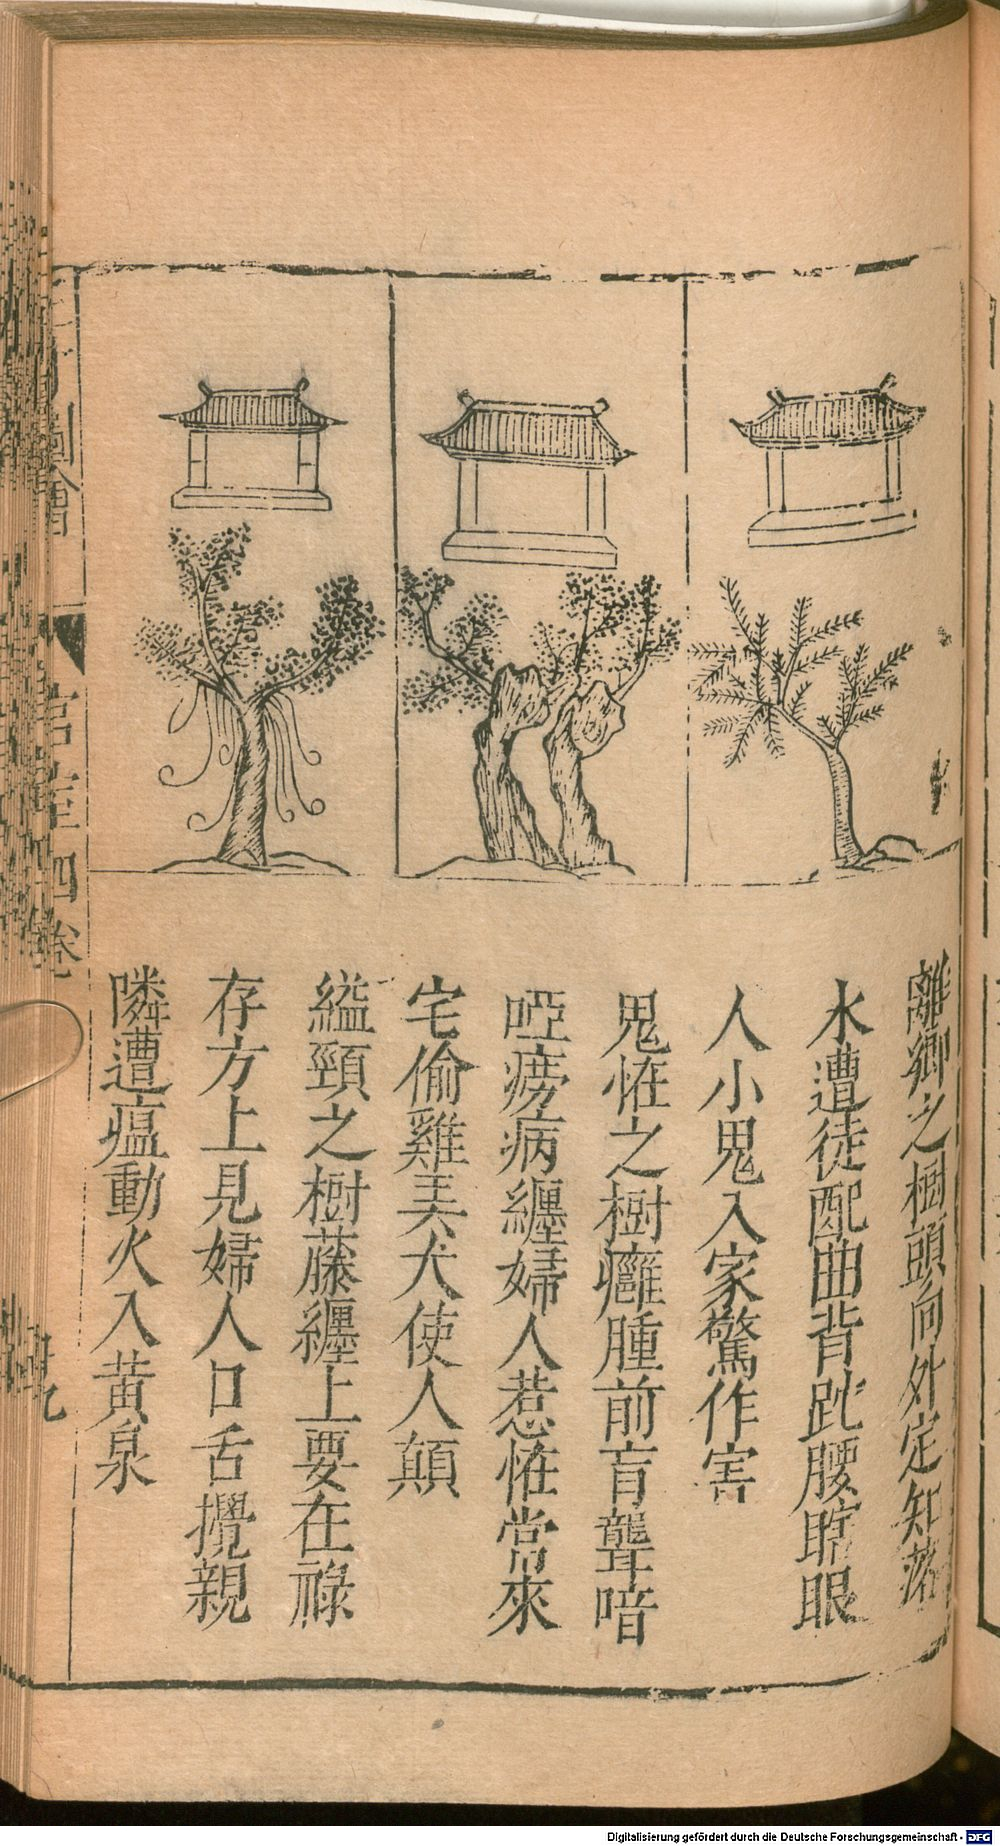 離鄉之樹頭向外定知落
水遭徒配曲背跎腰瞎眼
人小鬼入家驚作害
鬼恠之樹癰腫前盲聾喑
啞癆病纏婦人惹恠常來
宅偷雞弄犬使人顛
縊頸之樹藤纏上要在祿
存方上見婦人口舌攪親
隣遭瘟動火入黃泉
宮室四卷
Digitalisierung gefördert durch die Deutsche Forschungsgemeinschaft - DFG